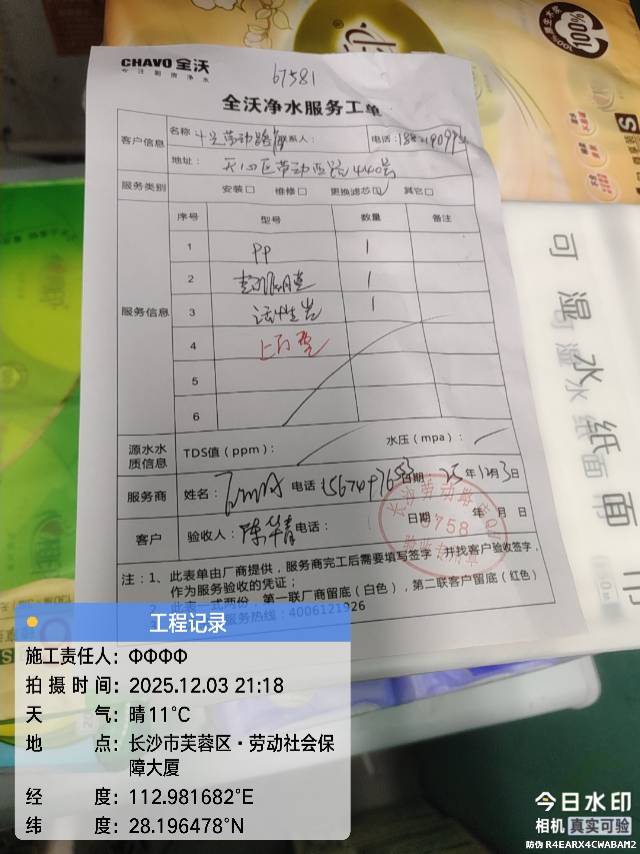 CHAVO 全沃
今日到清净水
67581
全沃净水服务工单
客户信息
名称：
联系人：
电话：
地址：天心区劳动西路440号
服务类别 安装□ 维修□ 更换滤芯☑ 其它□
服务信息
序号 型号 数量 备注
1 PP 1
2 1
3 活性炭 1
4
5
6
源水水质信息 TDS值（ppm）： 水压（mpa）：
服务商 姓名： 电话 日期：25年12月3日
客户 验收人：陈华清 电话： 日期 年 月 日
5758
注：1、此表单由厂商提供，服务商完工后需要填写签字，并找客户验收签字，
作为服务验收的凭证；
2、此表一式两份，第一联厂商留底（白色），第二联客户留底（红色）
服务热线：4006121926
100%
S
可湿水纸面
工程记录
施工责任人：ФФФФ
拍摄时间：2025.12.03 21:18
天气：晴11℃
地点：长沙市芙蓉区·劳动社会保
障大厦
经度：112.981682°E
纬度：28.196478°N
今日水印
相机 真实可验
防伪 R4EARX4CWABAM2